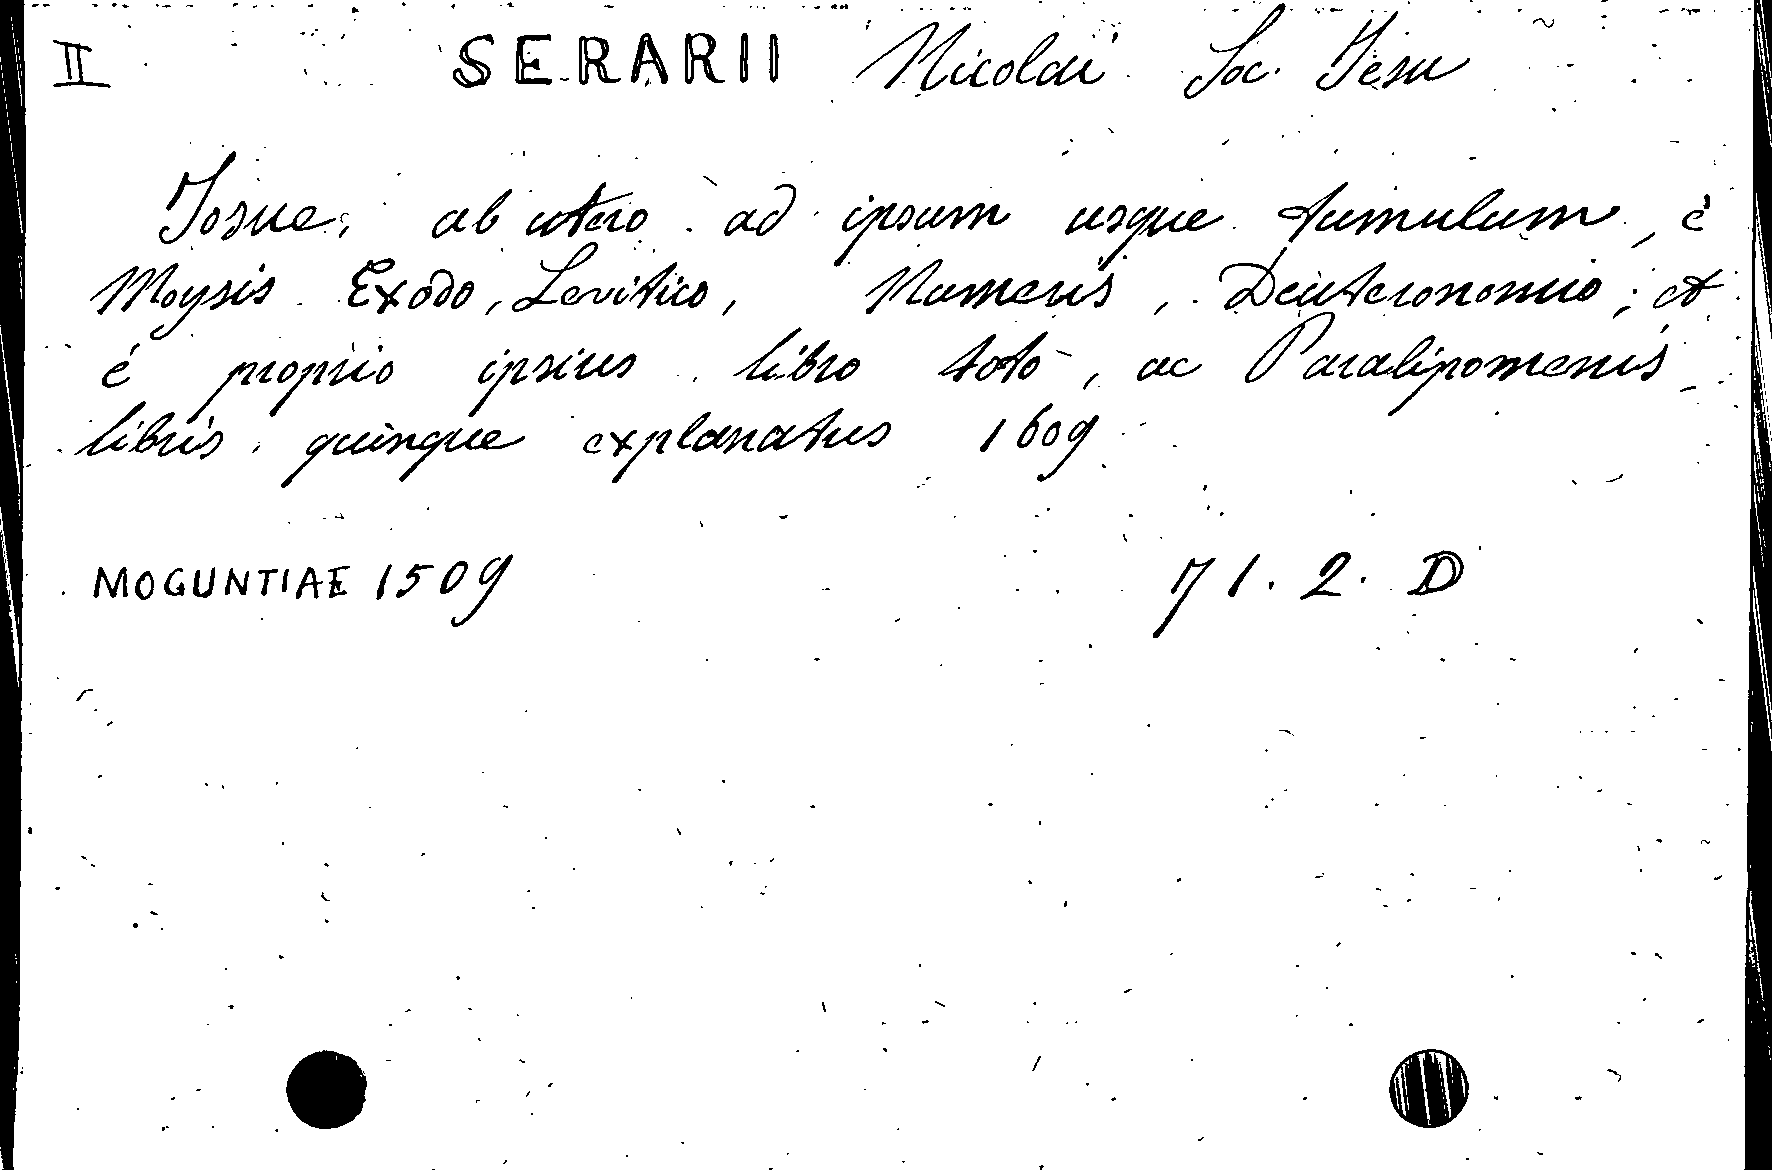 II SERARII Nicolai Soc. Iesu
Iosue, ab utero ad ipsum usque tumulum, è
Moysis Exodo, Levitico, Numeris, Deuteronomio; et
è proprio ipsius libro toto, ac Paralipomenis
libris quinque explanatus 1609
MOGUNTIAE 1509 71.2.D